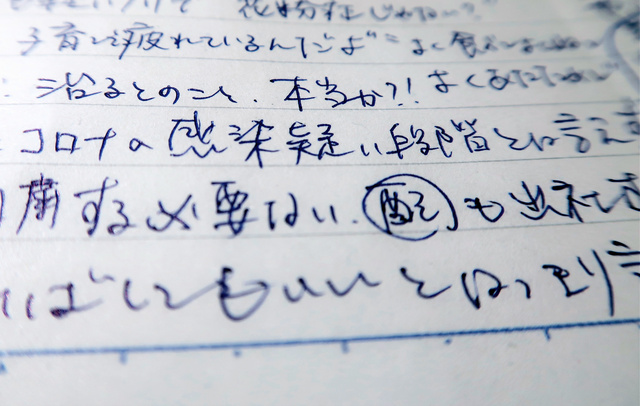 花粉症じゃない?
子育て疲れているんだよ" よく食べ
治るとのこと、本当か?! よくあたためて
コロナの感染疑い段階とは言え
粛する必要ない、配も出社
ばしてもいいとはっきり言